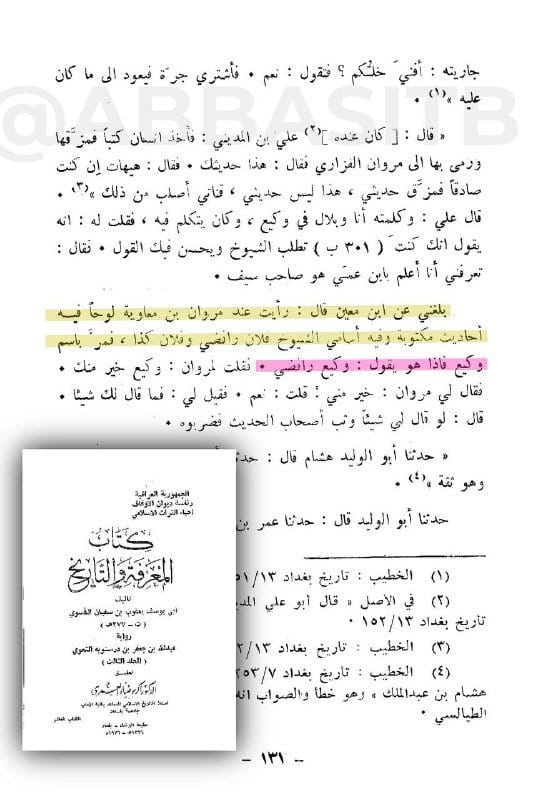 @ABBASITB
جاريته : أفنيَ خلكم ؟ فتقول : نعم • فأشتري جرة فيعود الى ما كان
عليه »(١) •
« قال : [ كان عنده ](٢) علي بن المديني : فأخذ انسان كتباً فمزقها
ورمى بها الى مروان الفزاري فقال : هذا حديثك • فقال : هيهات إن كنت
صادقاً فمزق حديثي ، هذا ليس حديثي ، قناتي أصلب من ذلك »(٣) •
قال علي : وكلمته أنا وبلال في وكيع ، وكان يتكلم فيه ، فقلت له : انه
يقول انك كنت ( ٣٠١ ب ) تطلب الشيوخ ويحسن فيك القول • فقال :
تعرفني أنا أعلم بابن عمي هو صاحب سيف •
بلغني عن ابن معين قال : رأيت عند مروان بن معاوية لوحاً فيه
أحاديث مكتوبة وفيه أسامي الشيوخ فلان رافضي وفلان كذا ، فمرَّ باسم
وكيع فاذا هو يقول : وكيع رافضي • فقلت لمروان : وكيع خير منك •
فقال لي مروان : خير مني ؟ قلت : نعم • فقيل لي : فما قال لك شيئا •
قال : لو قال لي شيئاً وثب أصحاب الحديث فضربوه •
« حدثنا أبو الوليد هشام قال :
وهو ثقة »(٤) •
حدثنا أبو الوليد قال : حدثنا عمر بن
(١) الخطيب : تاريخ بغداد ١٥١/١٣
(٢) في الاصل « قال أبو علي
تاريخ بغداد ١٥٢/١٣ •
(٣) الخطيب : تاريخ بغداد ١٣/
(٤) الخطيب : تاريخ بغداد ٧/
هشام بن عبدالملك » وهو خطأ والصواب
الطيالسي •
– ١٣١ –
الجمهورية العراقية
رئاسة ديوان الاوقاف
احياء التراث الاسلامي
كتاب
المعرفة والتاريخ
تأليف
أبي يوسف يعقوب بن سفيان الفسوي
( ت – ٢٧٧هـ )
رواية
عبدالله بن جعفر بن درستويه النحوي
( المجلد الثالث )
تحقيق
الدكتور أكرم ضياء العمري